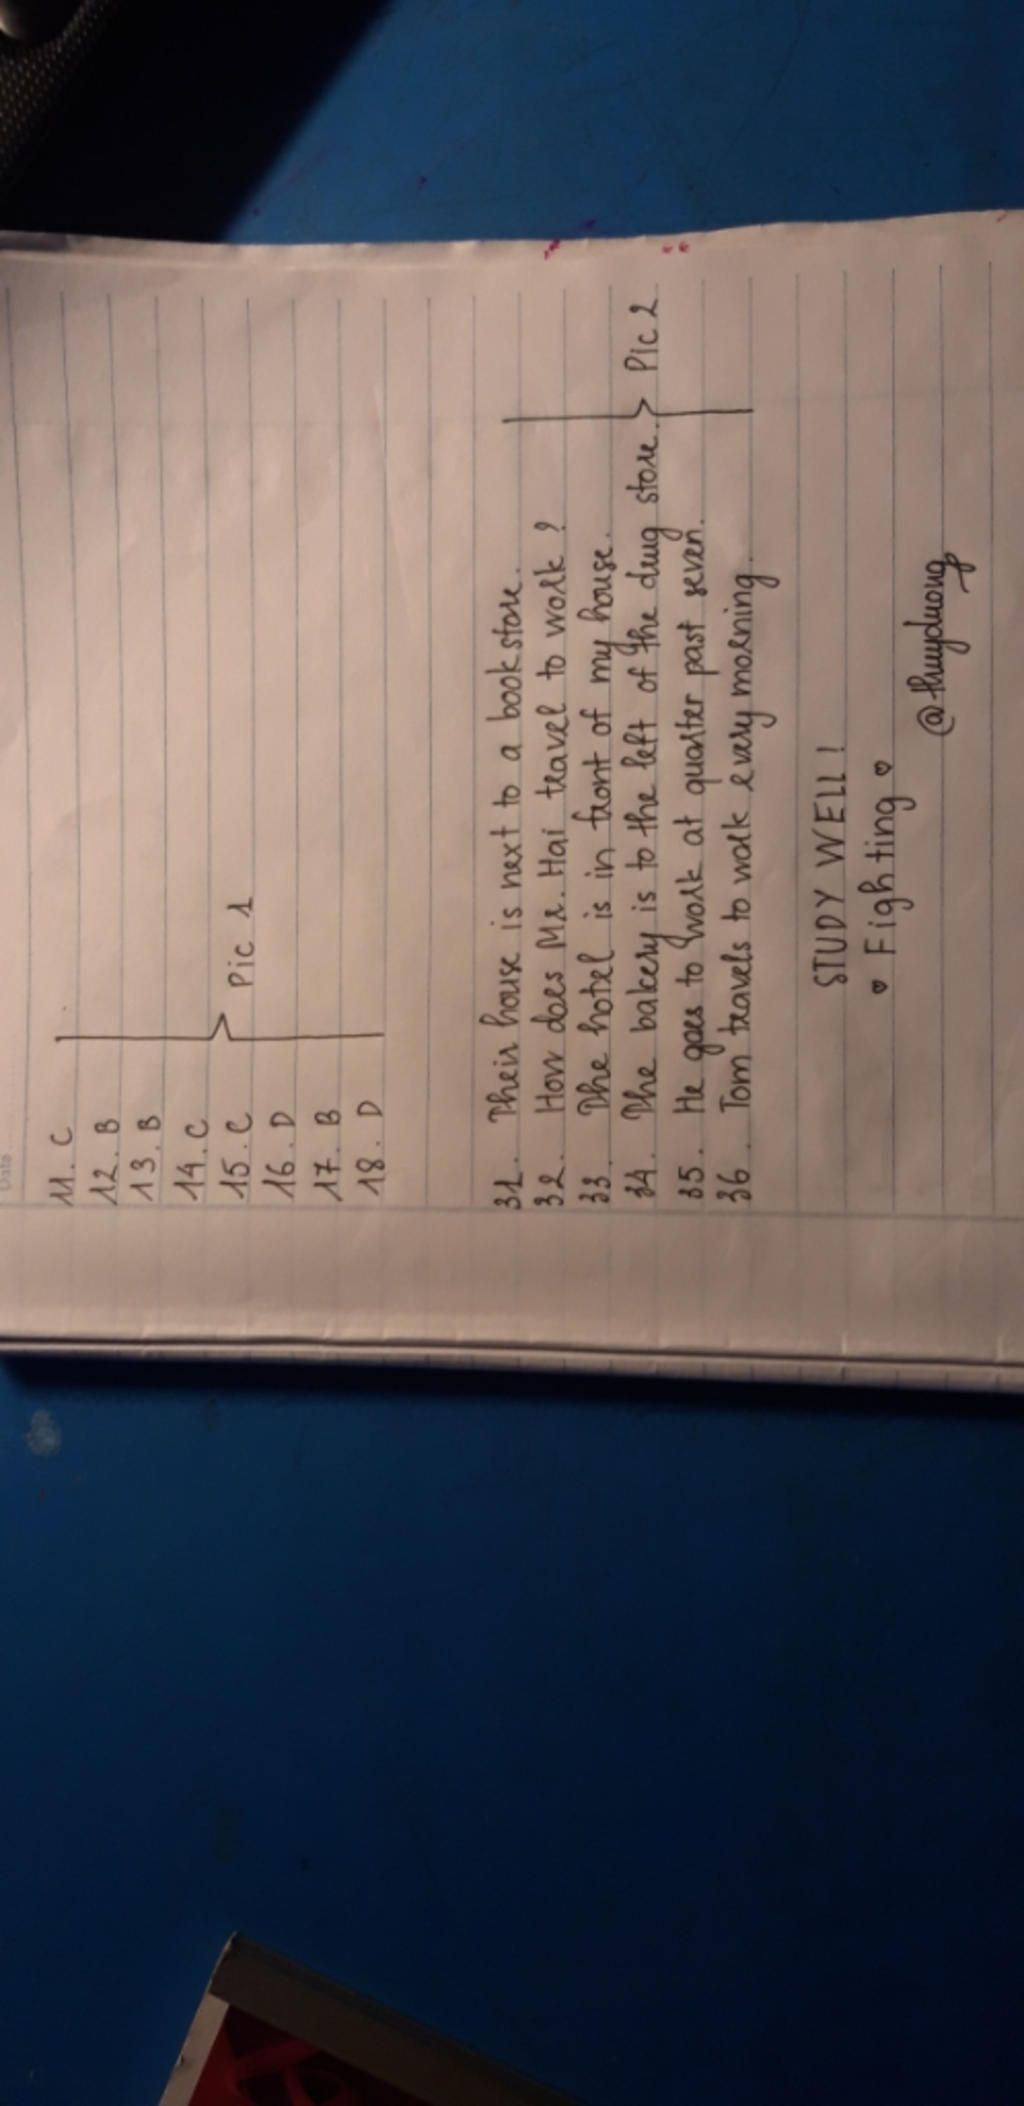 Date
11. C
12. B
13. B
14. C
15. C
16. D
17. B
18. D
Pic 1
31. Their house is next to a bookstore.
32. How does Mr. Hai travel to work ?
33. The hotel is in front of my house.
34. The bakery is to the left of the drug store.
35. He goes to work at quarter past seven.
36. Tom travels to work every morning.
Pic 2
STUDY WELL !
♡ Fighting ♡
@thuyduong